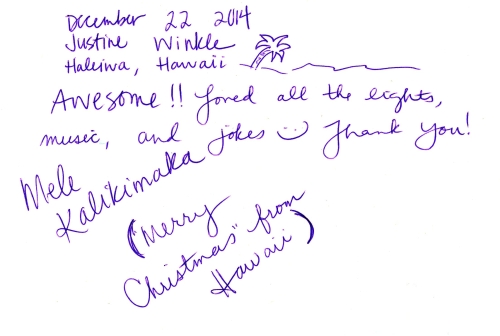 December 22 2014
Justine Winkle
Haleiwa, Hawaii
Awesome!! Loved all the lights,
music, and jokes Thank You!
Mele
Kalikimaka
("Merry
Christmas" from
Hawaii)